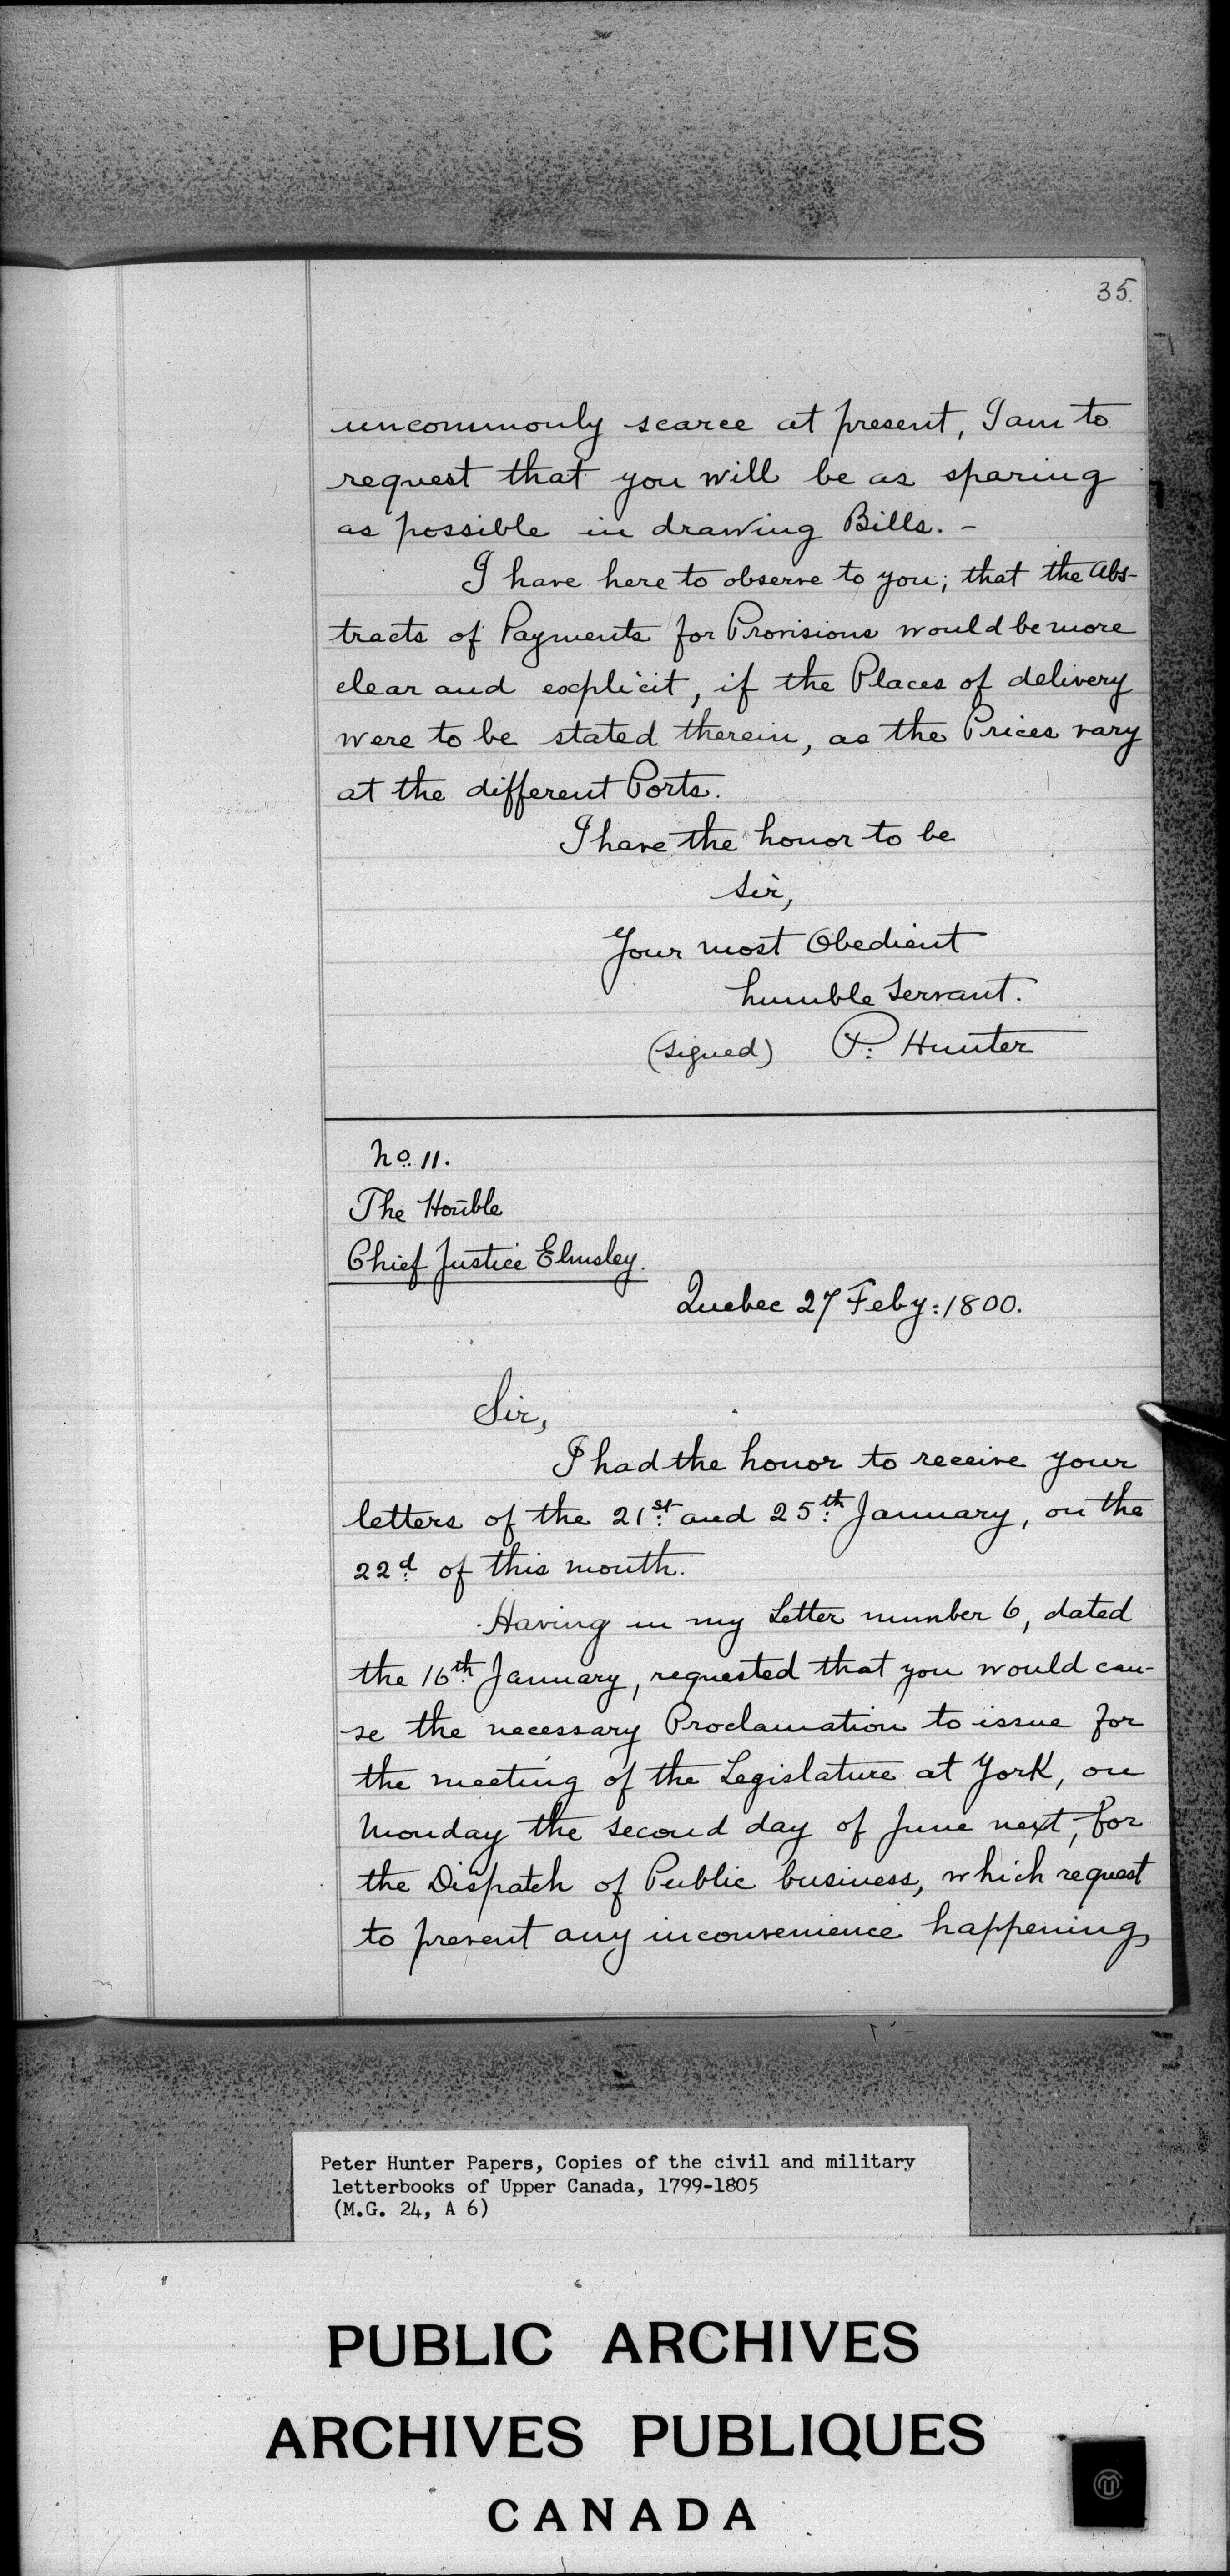 35.
uncommonly scarce at present, I am to
request that you will be as sparing
as possible in drawing Bills. -
I have here to observe to you; that the Abs-
tracts of Payments for Provisions would be more
clear and explicit, if the Places of delivery
were to be stated therein, as the Prices vary
at the different Ports.
I have the honor to be
Sir,
Your most Obedient
humble Servant.
(signed) P: Hunter
No. 11.
The Honble
Chief Justice Elmsley.
Quebec 27 Feby: 1800.
Sir,
I had the honor to receive your
letters of the 21st and 25th January, on the
22d of this month.
Having in my Letter number 6, dated
the 16th January, requested that you would cau-
se the necessary Proclamation to issue for
the meeting of the Legislature at York, on
Monday the second day of June next, for
the Dispatch of Public business, which request
to prevent any inconvenience happening
Peter Hunter Papers, Copies of the civil and military
letterbooks of Upper Canada, 1799-1805
(M.G. 24, A 6)
PUBLIC ARCHIVES
ARCHIVES PUBLIQUES
CANADA